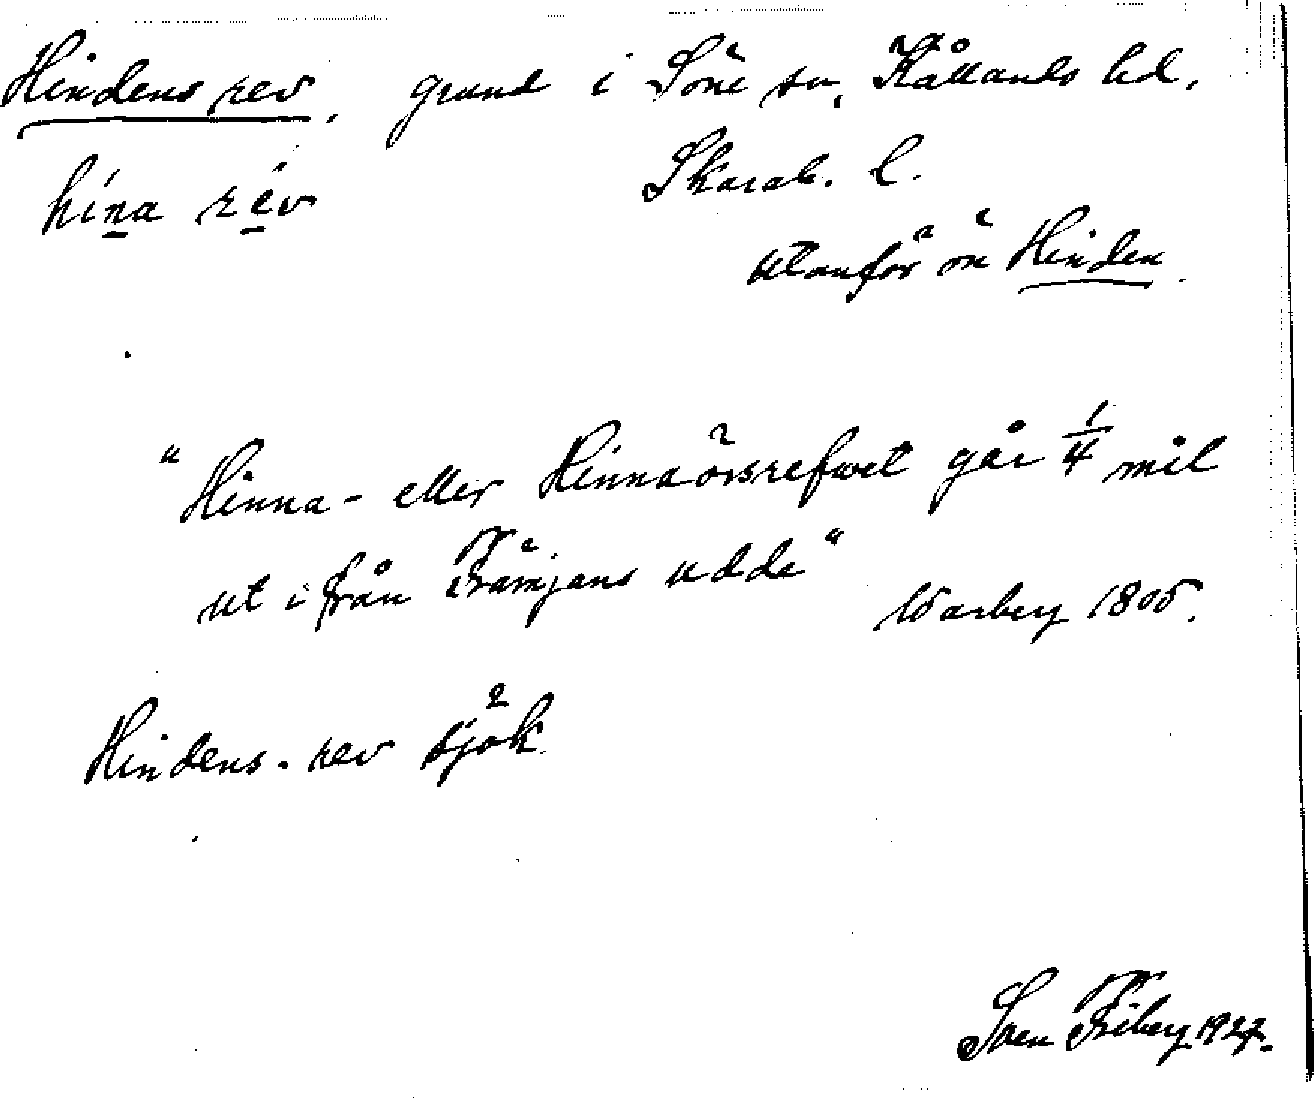 Hindens rev, grund i Söne sn, Kållands hd,
Skarab. l.
hína rév
utanför ön Hinden.
"Hinna- eller Hinnaörsrefwet går 1/4 mil
ut ifrån udde"
Warberg 1805.
Hindens-rev sjök.
Sven Friberg 1927.